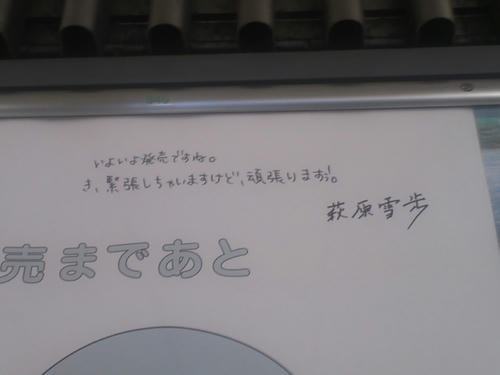 いよいよ発売ですね。
き、緊張しちゃいますけど、頑張りますぅ!
萩原雪歩
売まであと